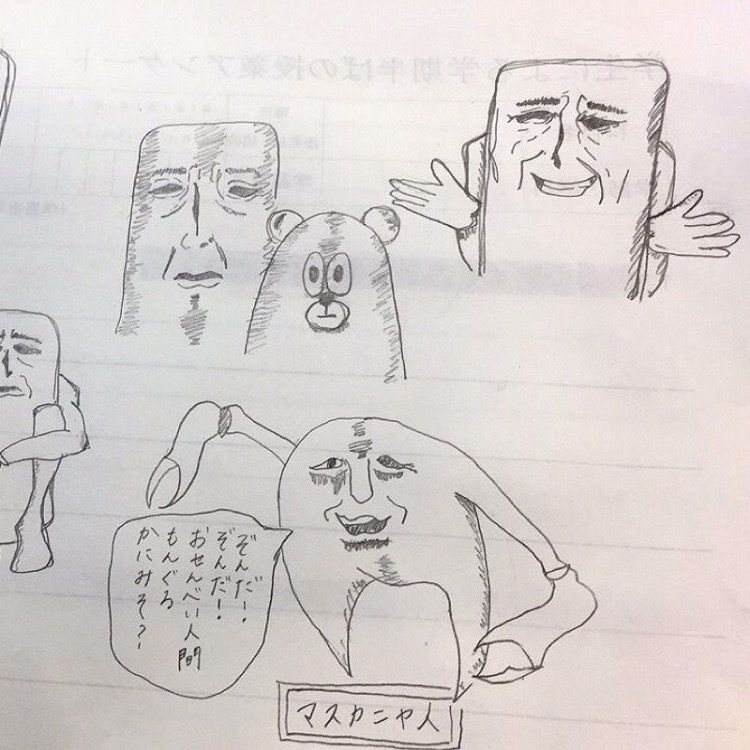 学生による学期半ばの授業アンケート
ぞんだ!
ぞんだ!
おせんべい人間
もんぐろ
かにみそ?
マスカニヤ人